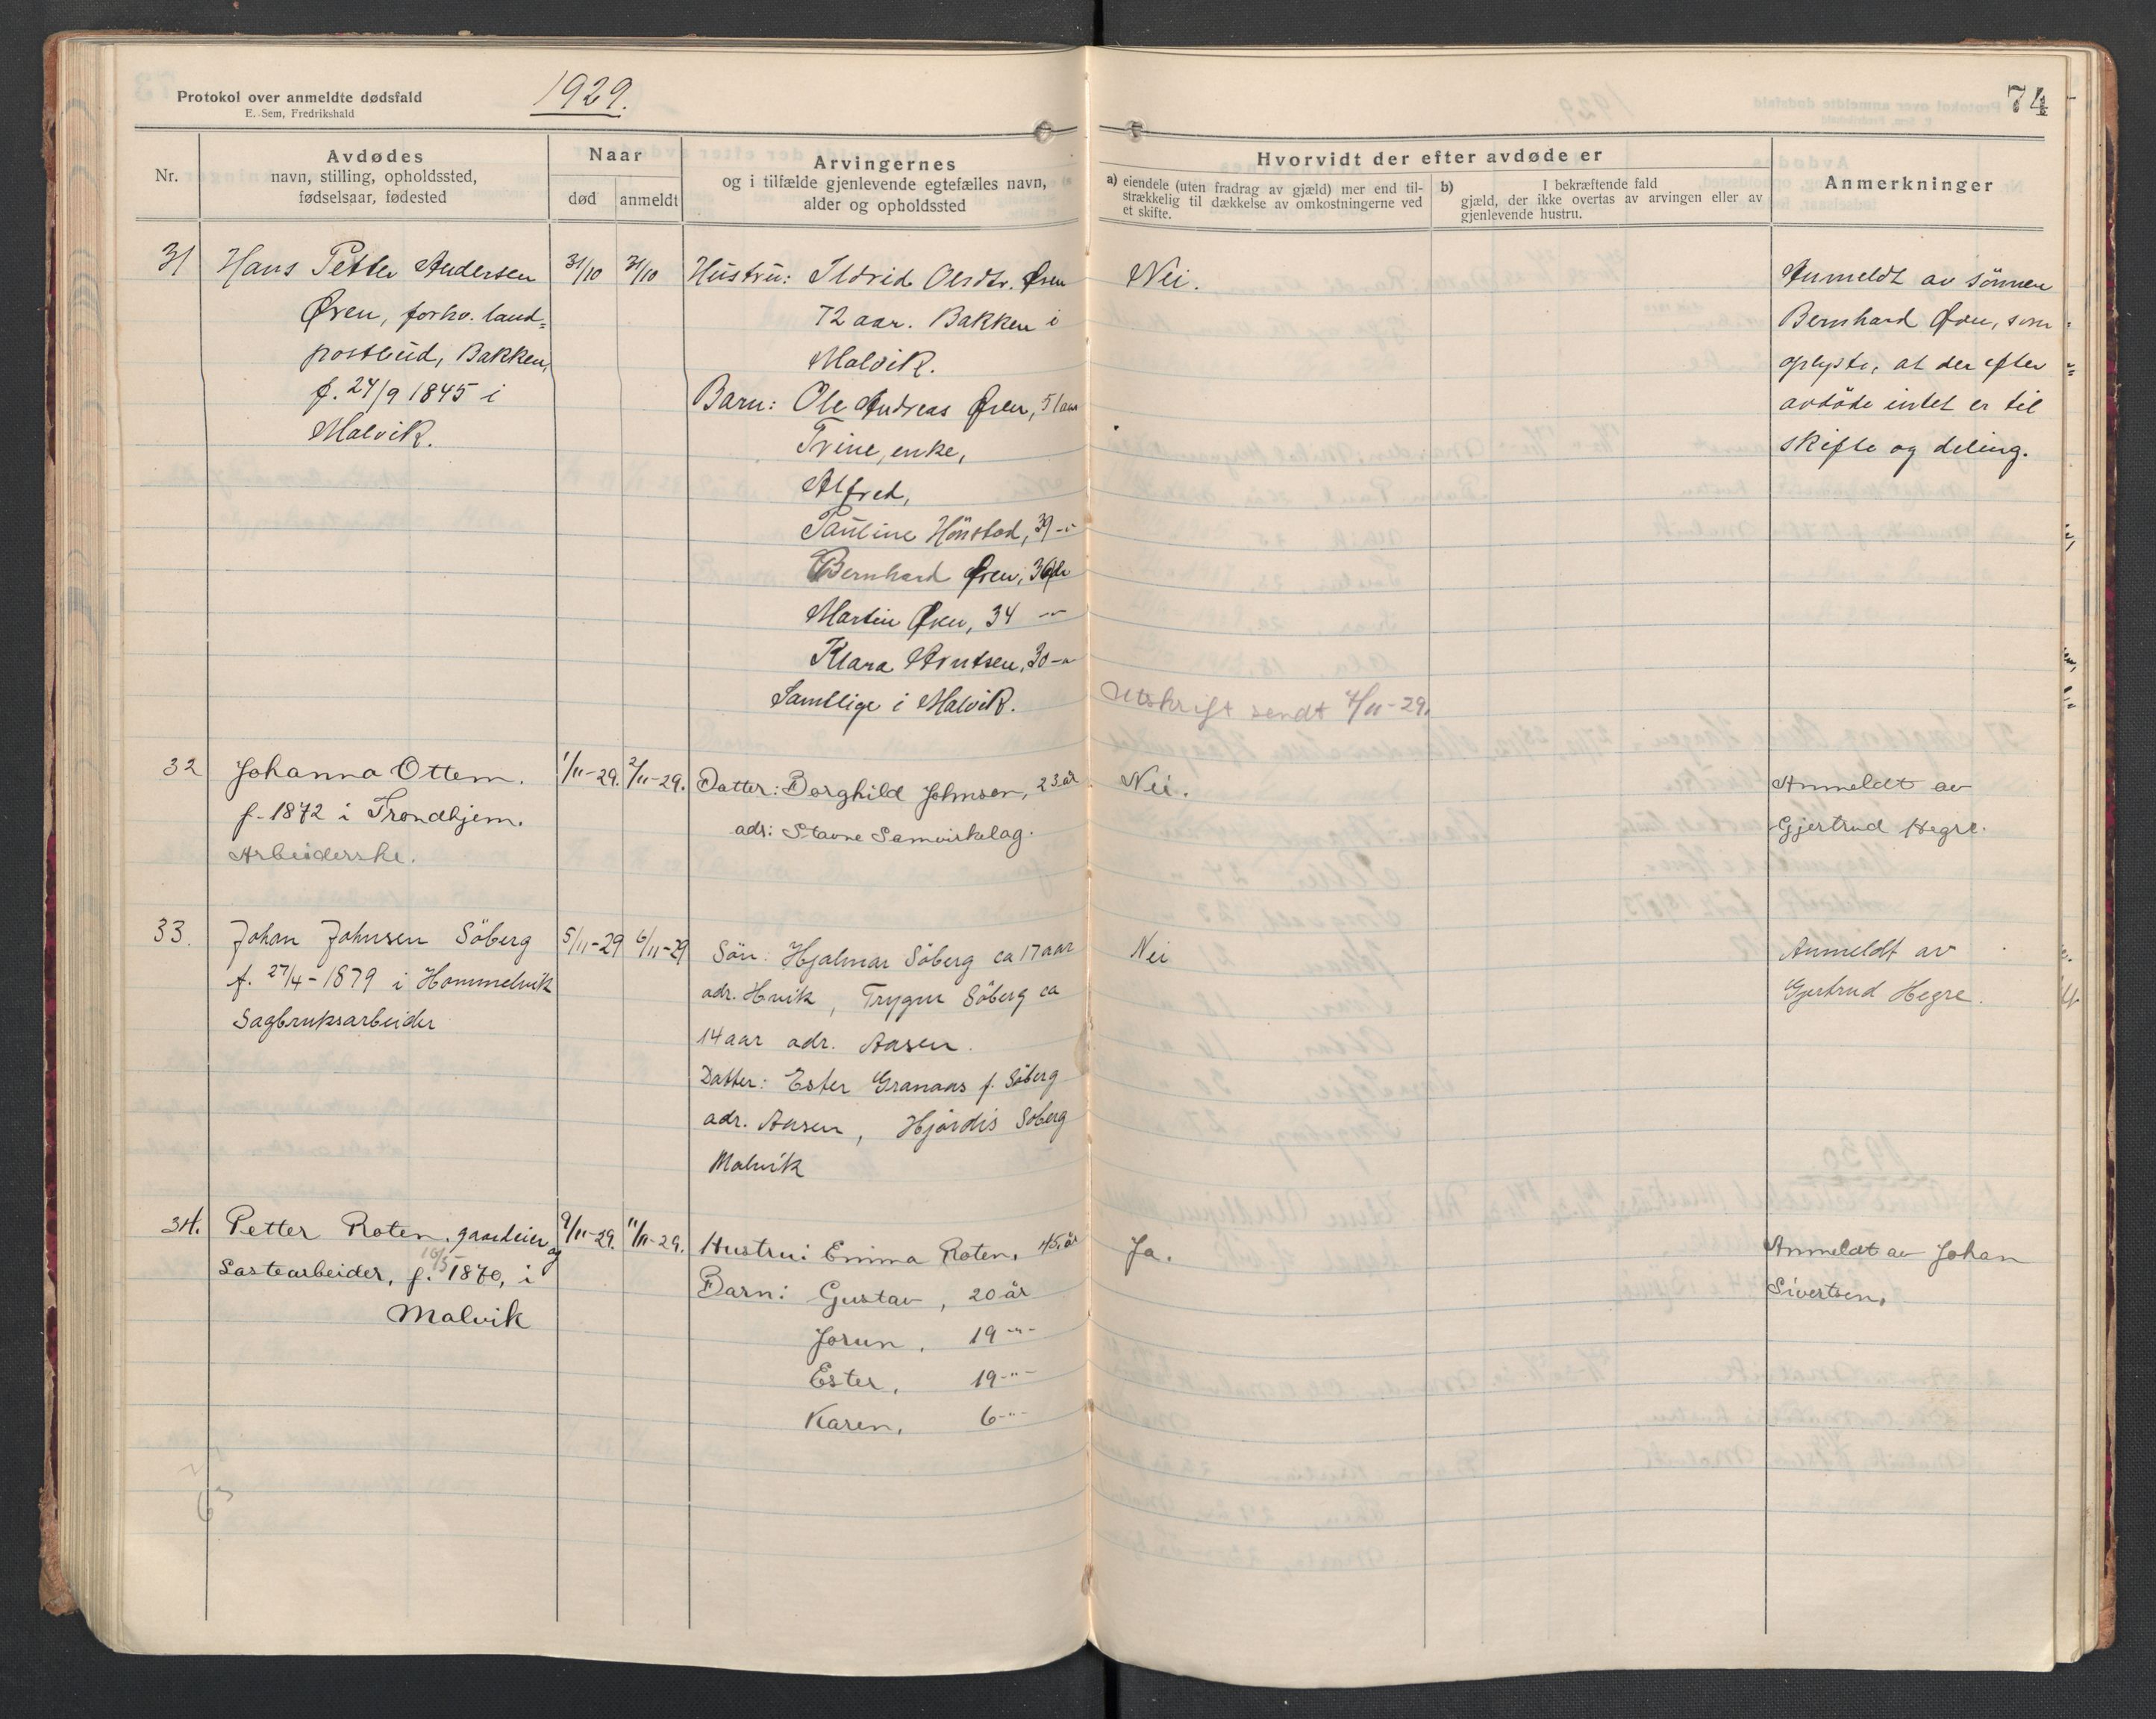 Protokol over anmeldte dødsfald
E. Sem, Fredrikshald
1929.
74
Nr.
Avdødes
navn, stilling, opholdssted,
fødselsaar, fødested
Naar
død
anmeldt
Arvingernes
og i tilfælde gjenlevende egtefælles navn,
alder og opholdssted
Hvorvidt der efter avdøde er
a) eiendele (uten fradrag av gjæld) mer end til-
strækkelig til dækkelse av omkostningerne ved
et skifte.
b) I bekræftende fald
gjæld, der ikke overtas av arvingen eller av
gjenlevende hustru.
Anmerkninger
31
Hans Petter Andersen
Øren, forhv. land=
postbud, Bakken,
f. 24/9 1845 i
Malvik.
31/10
31/10
Hustru: Ildrid Olsdtr. Øren
72 aar. Bakken i
Malvik.
Barn: Ole Andreas Øren, 51 aar
Trine, enke,
Alfred,
Pauline Hönstad, 39 -"
Bernhard Øren, 36
Martin Øren, 34 -"-
Klara Arntsen, 30 -"
Samtlige i Malvik.
Nei.
Utskrift sendt 4/11-29.
Anmeldt av sönnen
Bernhard Øren, som
oplyste, at der efter
avdöde intet er til
skifte og deling.
32
Johanna Ottem.
f. 1872 i Trondhjem.
Arbeiderske.
1/11-29.
2/11-29.
Datter: Borghild Johnsen, 23 år
adr: Stavne Samvirkelag.
Nei.
Anmeldt av
Gjertrud Hegre.
33.
Johan Johnsen Söberg
f. 27/4-1879 i Hommelvik
Sagbruksarbeider
5/11-29
6/11-29
Sön: Hjalmar Söberg ca 17 aar
adr. Hvik, Trygve Söberg ca
14 aar adr. Aasen.
Datter: Ester Granaas f. Söberg
adr. Aasen, Hjördis Söberg
Malvik
Nei
Anmeldt av
Gjertrud Hegre.
34.
Petter Roten, gaardeier og
Lastearbeider, f. 16/5 1870, i
Malvik
9/11-29.
11/11-29.
Hustru: Emma Roten, 45 år
Barn: Gustav, 20 år
Jorun, 19 -"-
Ester, 19 -"-
Karen, 6 -"-
Ja.
Anmeldt av Johan
Sivertsen.